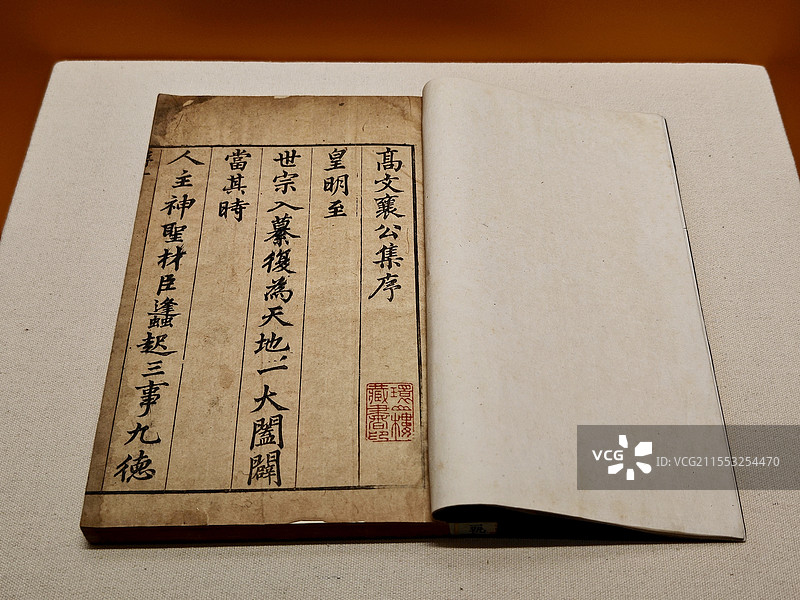 高文襄公集序
皇明至
世宗入纂復為天地一大闔闢
當其時
人主神聖材臣蠭起三事九德
藏書印
VCG
ID:VCG211553254470